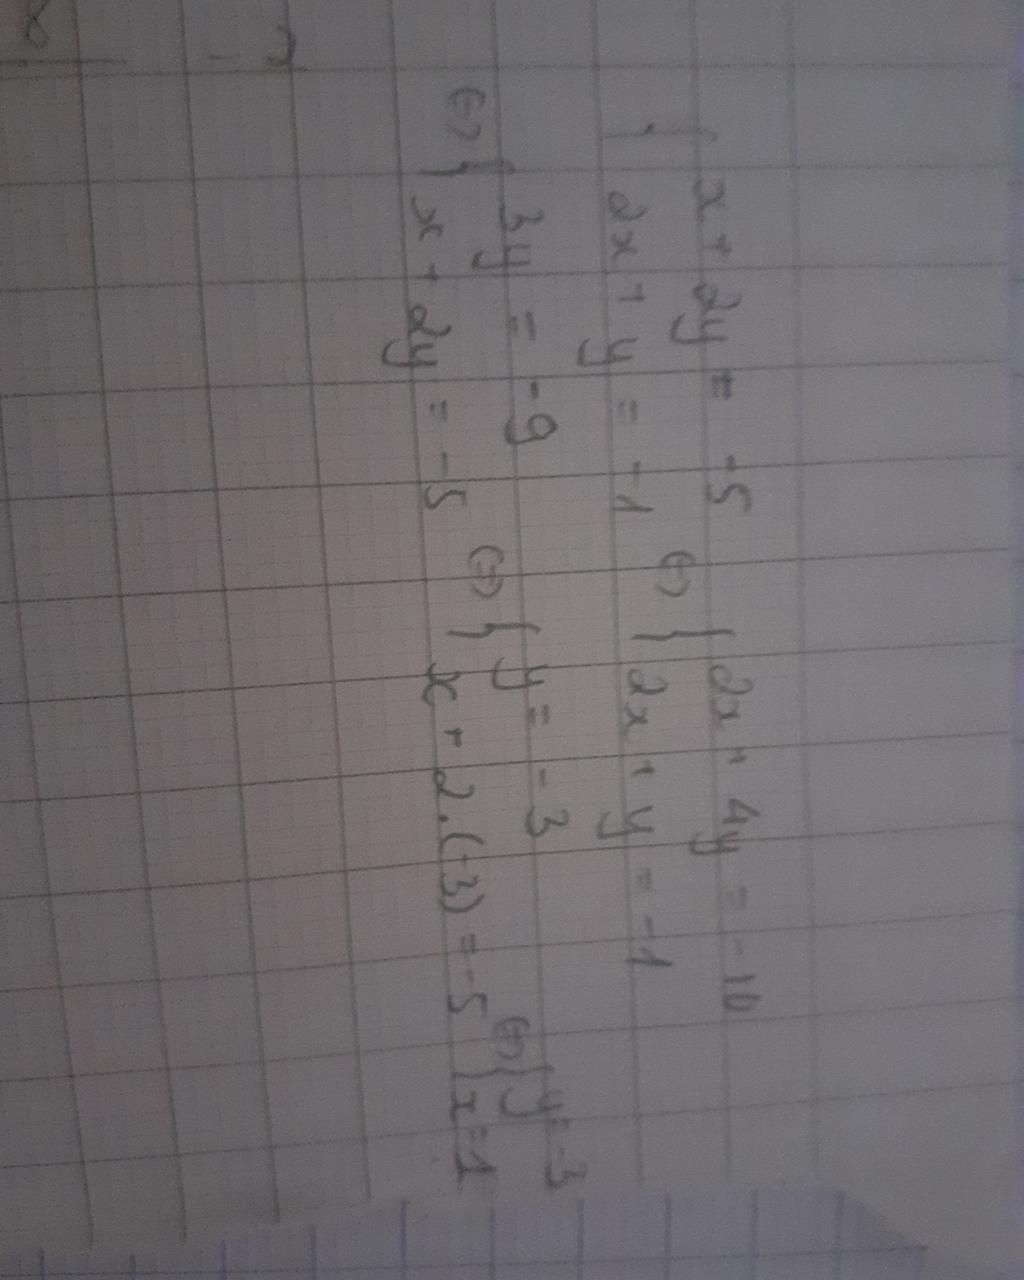 { x + 2y = -5
{ 2x + y = -1 (=) { 2x + 4y = -10
{ 2x + y = -1
(=) { 3y = -9
{ x + 2y = -5 (=) { y = -3
{ x + 2.(-3) = -5 (=) { y = -3
{ x = 1